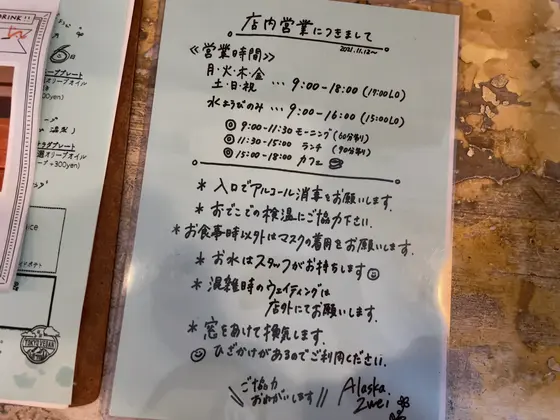 DRINK!!
プレート
オリーブオイル
00yen)
プレート
オリーブオイル
+300yen)
店内営業につきまして
2021.11.12〜
≪営業時間≫
月・火・木・金
土・日・祝 … 9:00-18:00 (17:00LO)
水ようびのみ … 9:00-16:00 (15:00LO)
◎ 9:00-11:30 モーニング (60分制)
◎ 11:30-15:00 ランチ (90分制)
◎ 15:00-18:00 カフェ
* 入口でアルコール消毒をお願いします。
* おでこでの検温にご協力下さい。
* お食事時以外はマスクの着用をお願いします。
* お水はスタッフがお持ちします
* 混雑時のウェイティングは
店外にてお願いします。
* 窓をあけて換気します。
ひざかけがあるのでご利用ください。
ご協力
おねがいします
Alaska
zwei